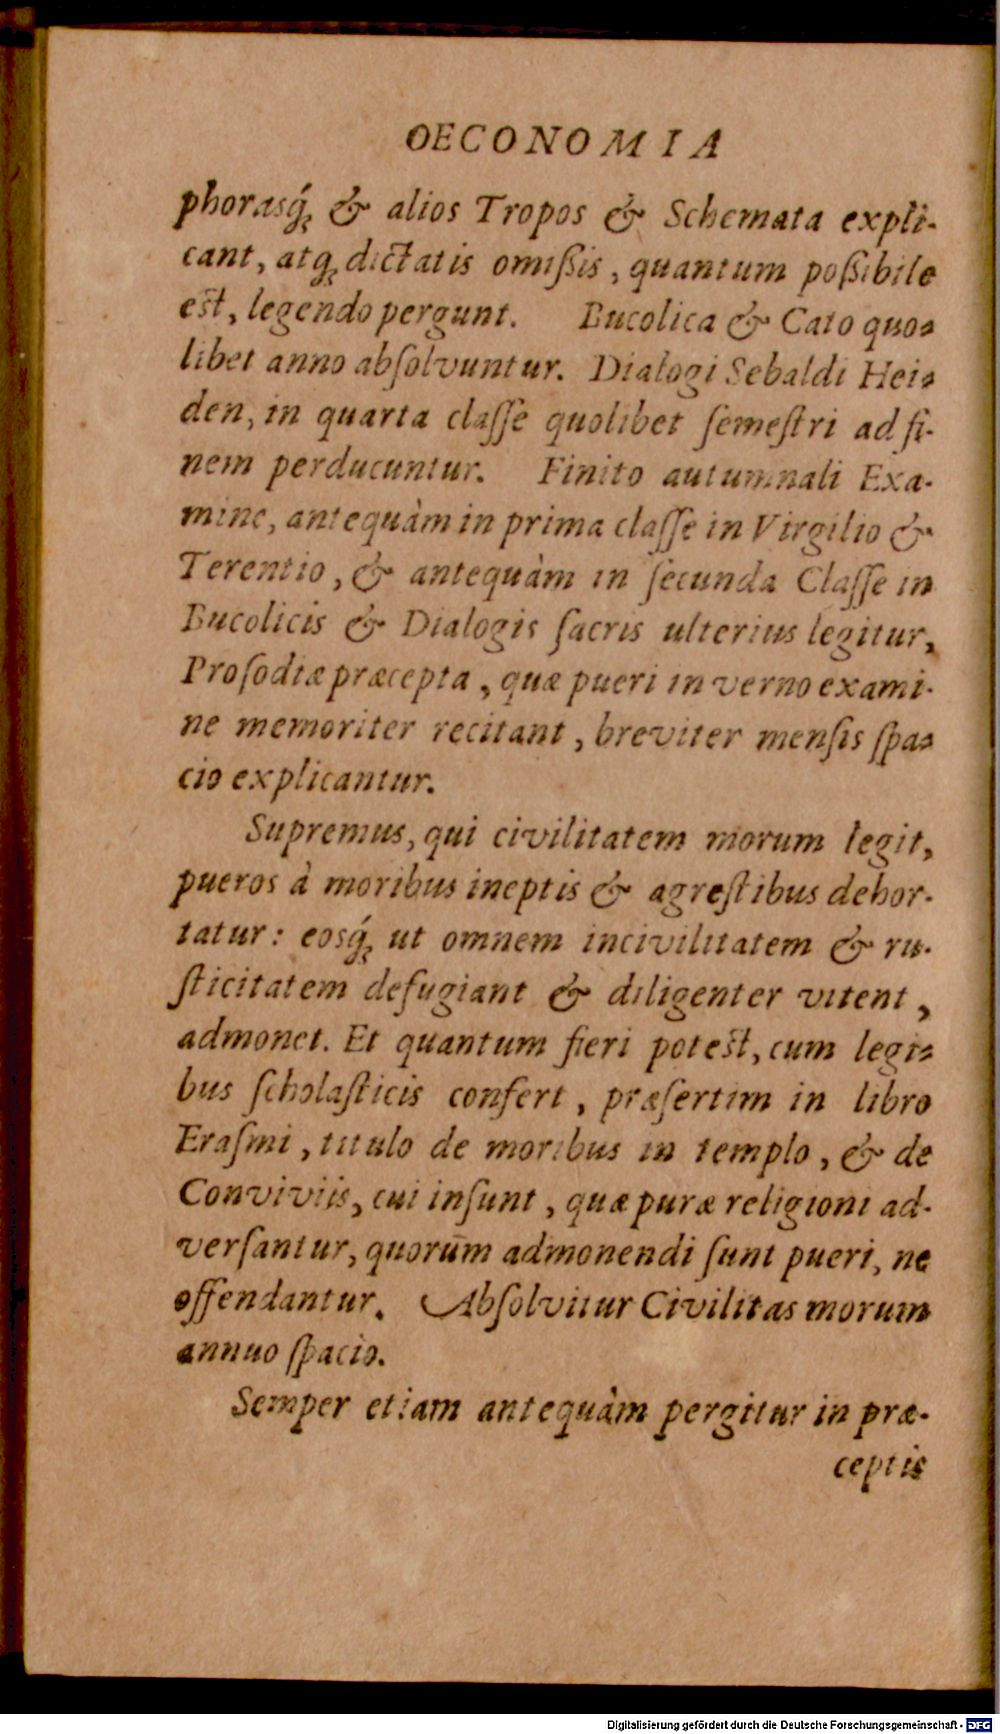 OECONOMIA
phorasq́ꝫ & alios Tropos & Schemata expli-
cant, atqꝫ dictatis omißis, quantum poßibile
est, legendo pergunt. Bucolica & Cato quo-
libet anno abſolvuntur. Dialogi Sebaldi Hei-
den, in quarta claſſe quolibet ſemeſtri ad fi-
nem perducuntur. Finito autumnali Exa-
mine, antequàm in prima claſſe in Virgilio &
Terentio, & antequàm in ſecunda Claſſe in
Bucolicis & Dialogis ſacris ulterius legitur,
Proſodiæ præcepta, quæ pueri in verno exami-
ne memoriter recitant, breviter menſis ſpa-
cio explicantur.
Supremus, qui civilitatem morum legit,
pueros à moribus ineptis & agreſtibus dehor-
tatur: eosq́ꝫ ut omnem incivilitatem & ru-
ſticitatem defugiant & diligenter vitent,
admonet. Et quantum fieri potest, cum legi-
bus ſcholaſticis confert, præſertim in libro
Eraſmi, titulo de moribus in templo, & de
Conviviis, cui inſunt, quæ puræ religioni ad-
verſantur, quorum admonendi ſunt pueri, ne
offendantur. Abſolvitur Civilitas morum
annuo ſpacio.
Semper etiam antequàm pergitur in præ-
ceptis
Digitalisierung gefördert durch die Deutsche Forschungsgemeinschaft - DFG